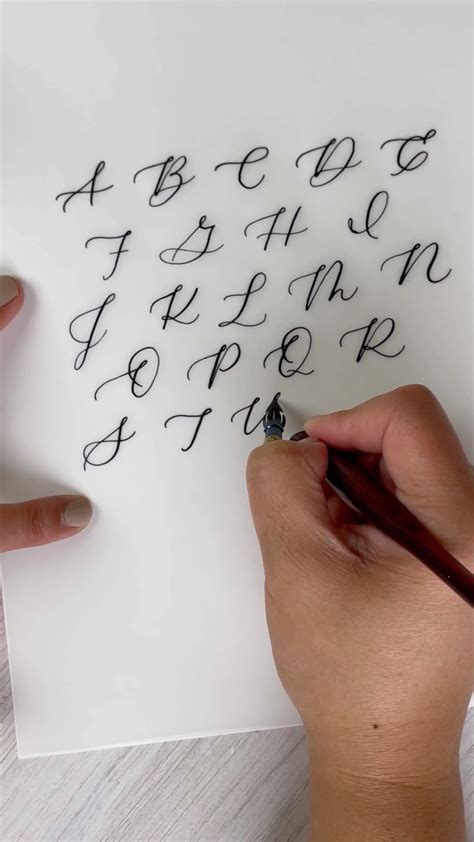 A B C D E
F G H I
J K L M N
O P Q R
S T U